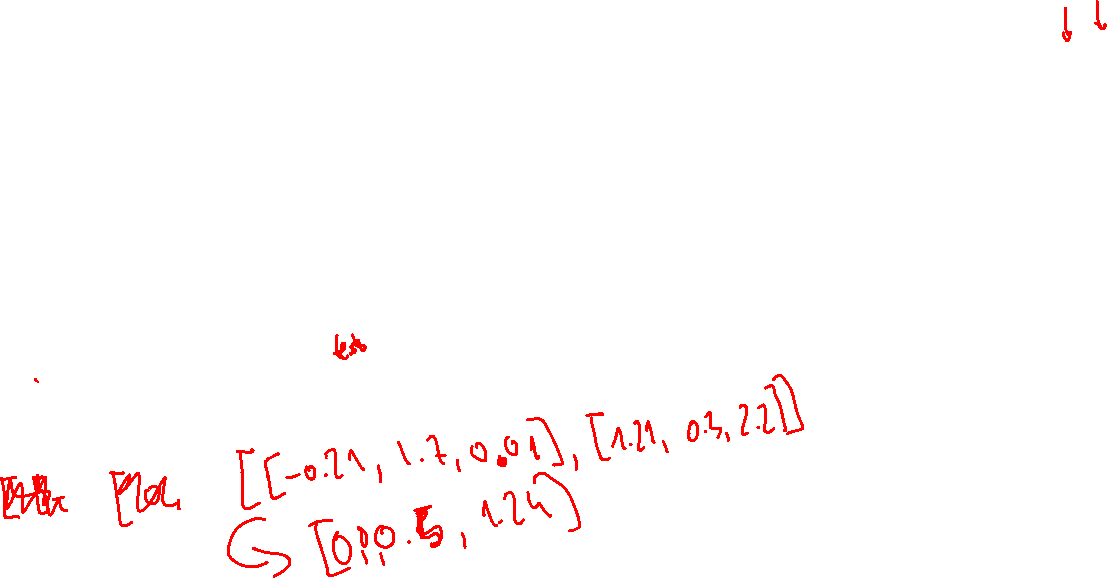 test
[[-0.21, 1.7, 0.01], [1.21, 0.3, 2.2]]
[0, 0.5, 1.24]